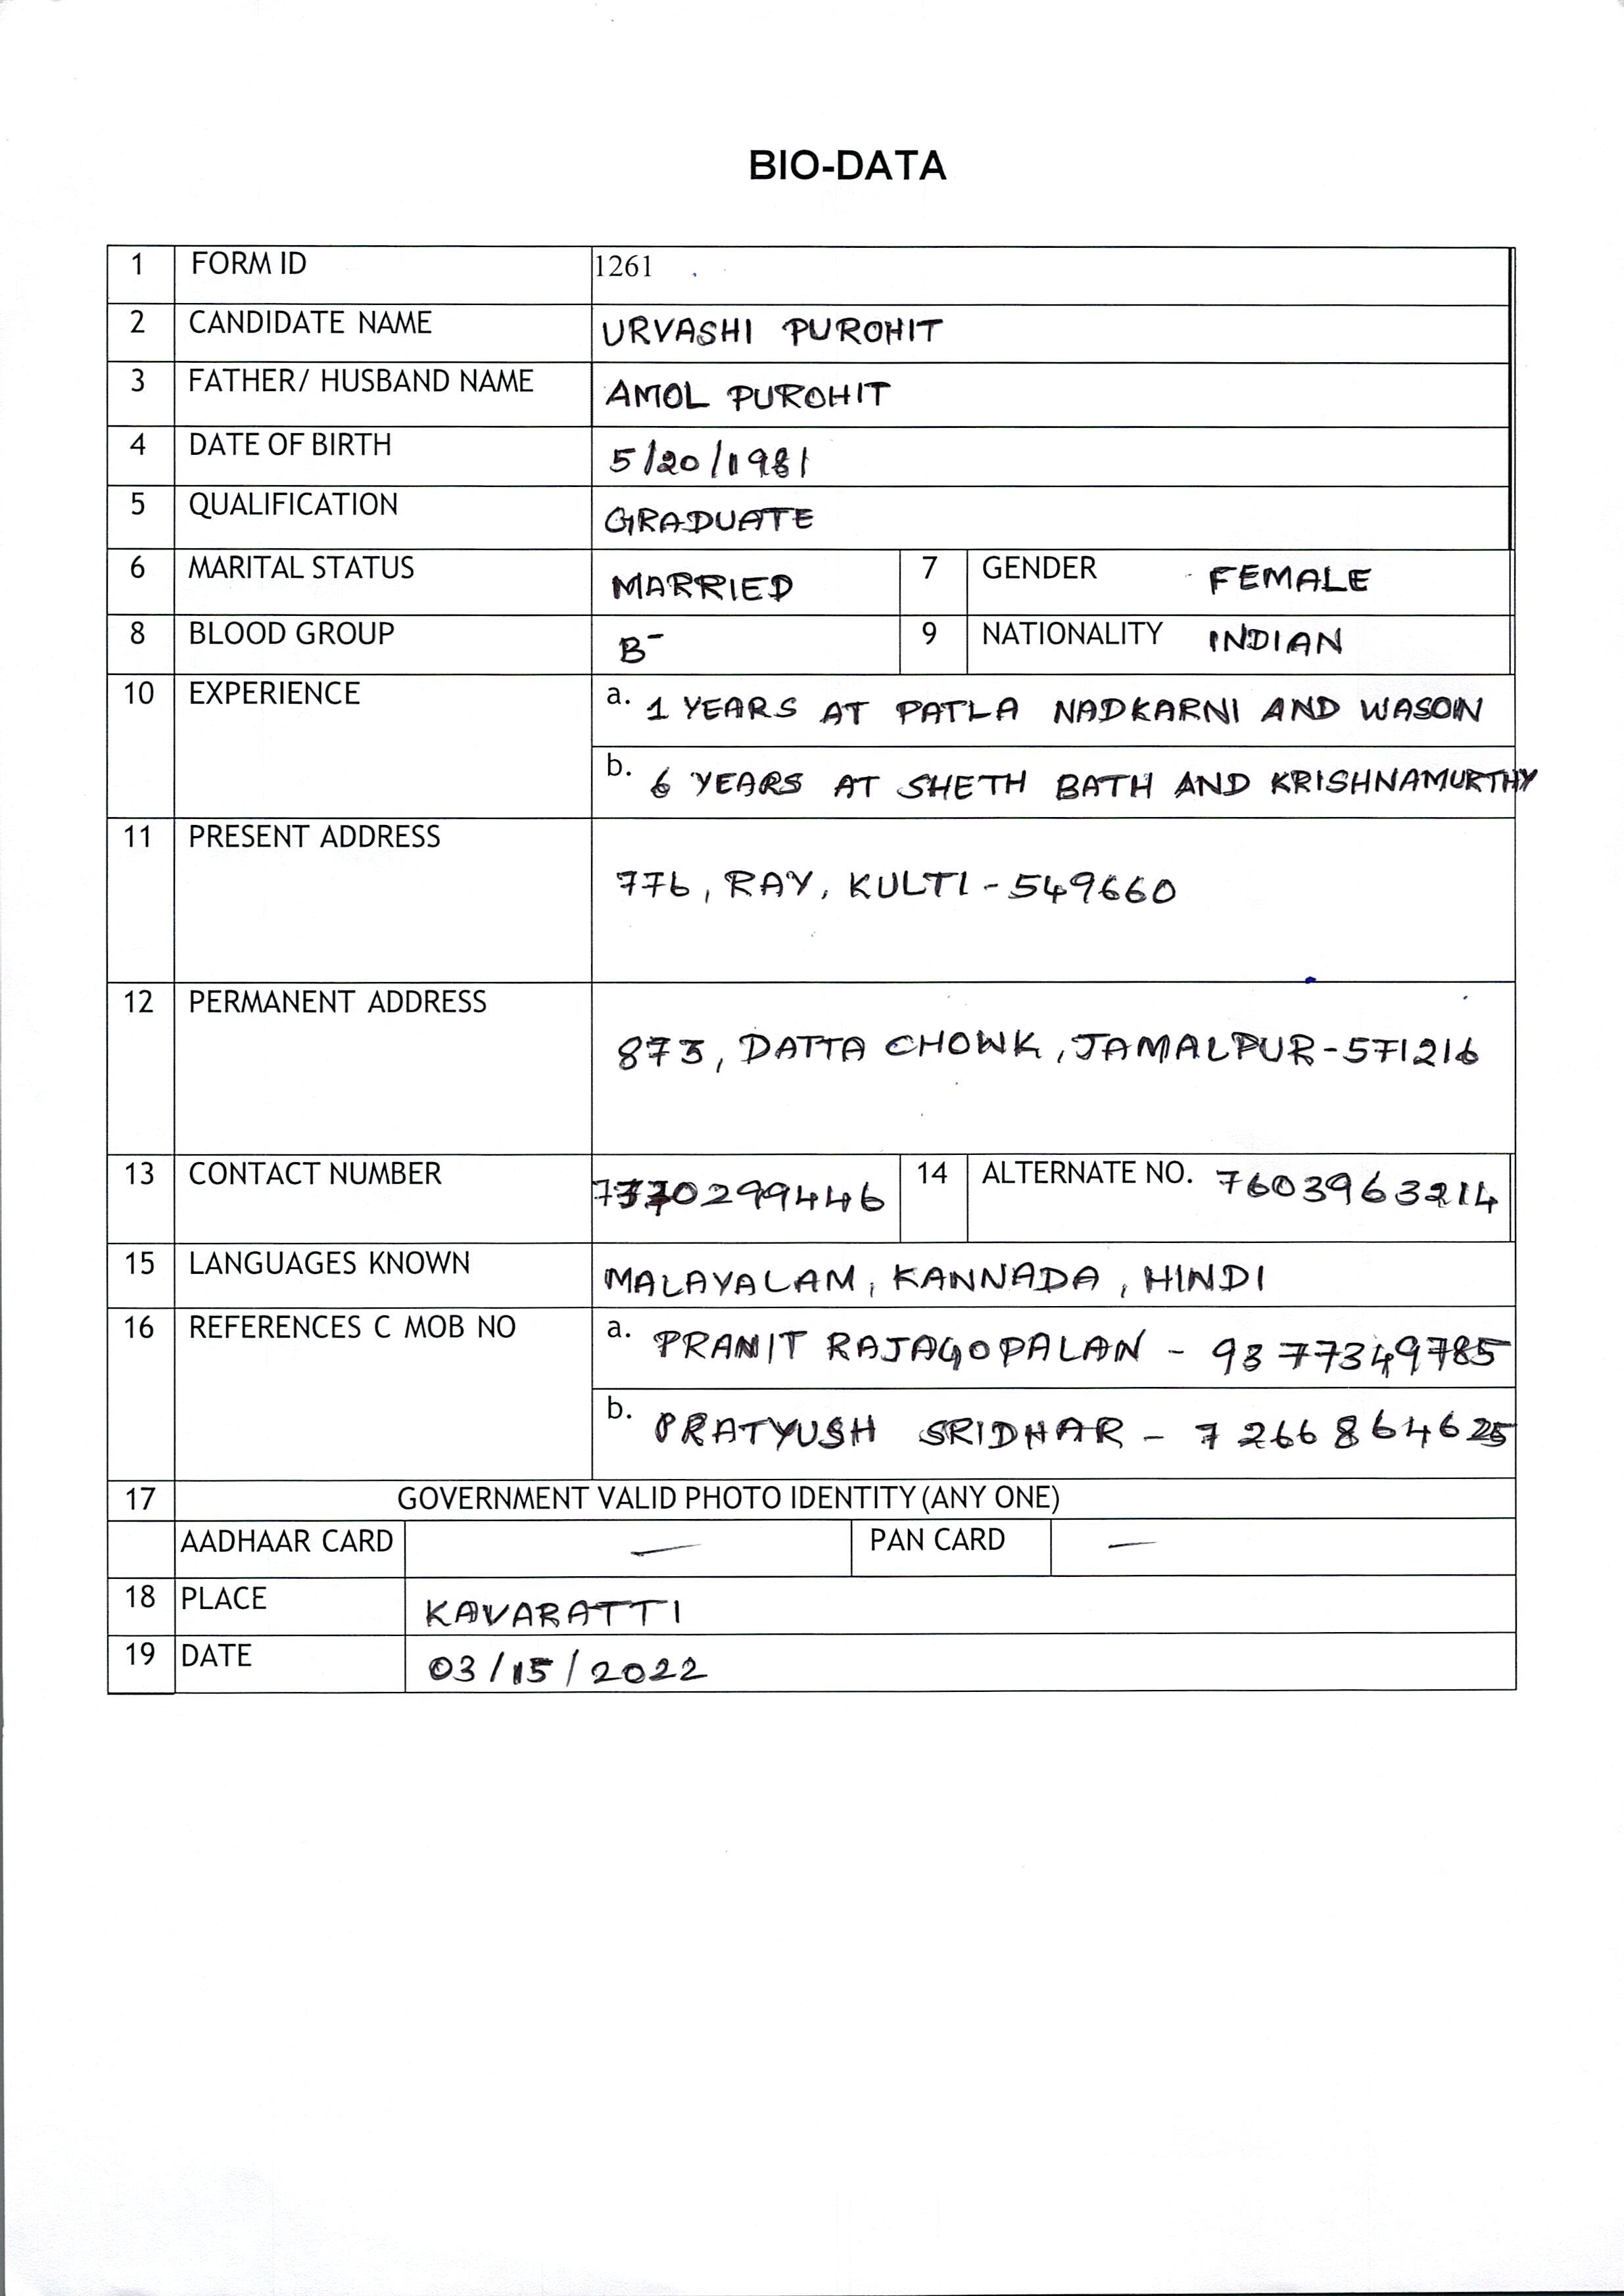 BIO-DATA
1 FORM ID 1261
2 CANDIDATE NAME URVASHI PUROHIT
3 FATHER/ HUSBAND NAME AMOL PUROHIT
4 DATE OF BIRTH 5/20/1981
5 QUALIFICATION GRADUATE
6 MARITAL STATUS MARRIED 7 GENDER FEMALE
8 BLOOD GROUP B- 9 NATIONALITY INDIAN
10 EXPERIENCE a. 1 YEARS AT PATLA NADKARNI AND WASON
b. 6 YEARS AT SHETH BATH AND KRISHNAMURTHY
11 PRESENT ADDRESS
776, RAY, KULTI-549660
12 PERMANENT ADDRESS
873, DATTA CHOWK, JAMALPUR-571216
13 CONTACT NUMBER 14 ALTERNATE NO. 7603963214
15 LANGUAGES KNOWN MALAYALAM, KANNADA, HINDI
16 REFERENCES C MOB NO a. PRANIT RAJAGOPALAN - 9377349785
b. PRATYUSH SRIDHAR - 7266864625
17 GOVERNMENT VALID PHOTO IDENTITY (ANY ONE)
AADHAAR CARD — PAN CARD —
18 PLACE KAVARATTI
19 DATE 03/15/2022